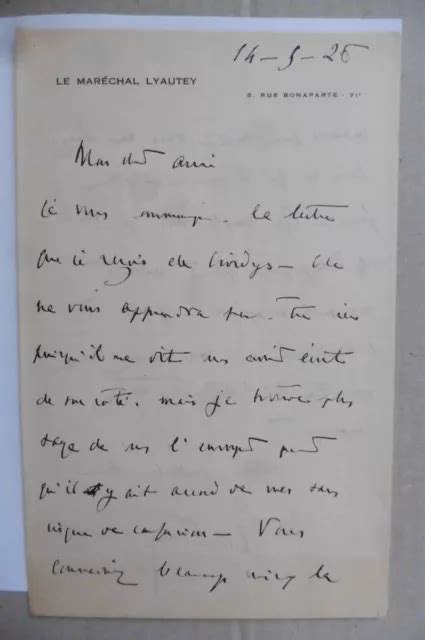 14-5-26
LE MARÉCHAL LYAUTEY
5, RUE BONAPARTE - VIe
Mon cher ami
Je vous communique la lettre
que je reçois de - Elle
ne vous apprendra peut-être rien
puisqu'il me dit vous avoir écrit
de son côté. mais je trouve plus
sage de vous l'envoyer pour
qu'il y ait accord de vues sans
risque de confusion - Vous
connaissez beaucoup mieux la